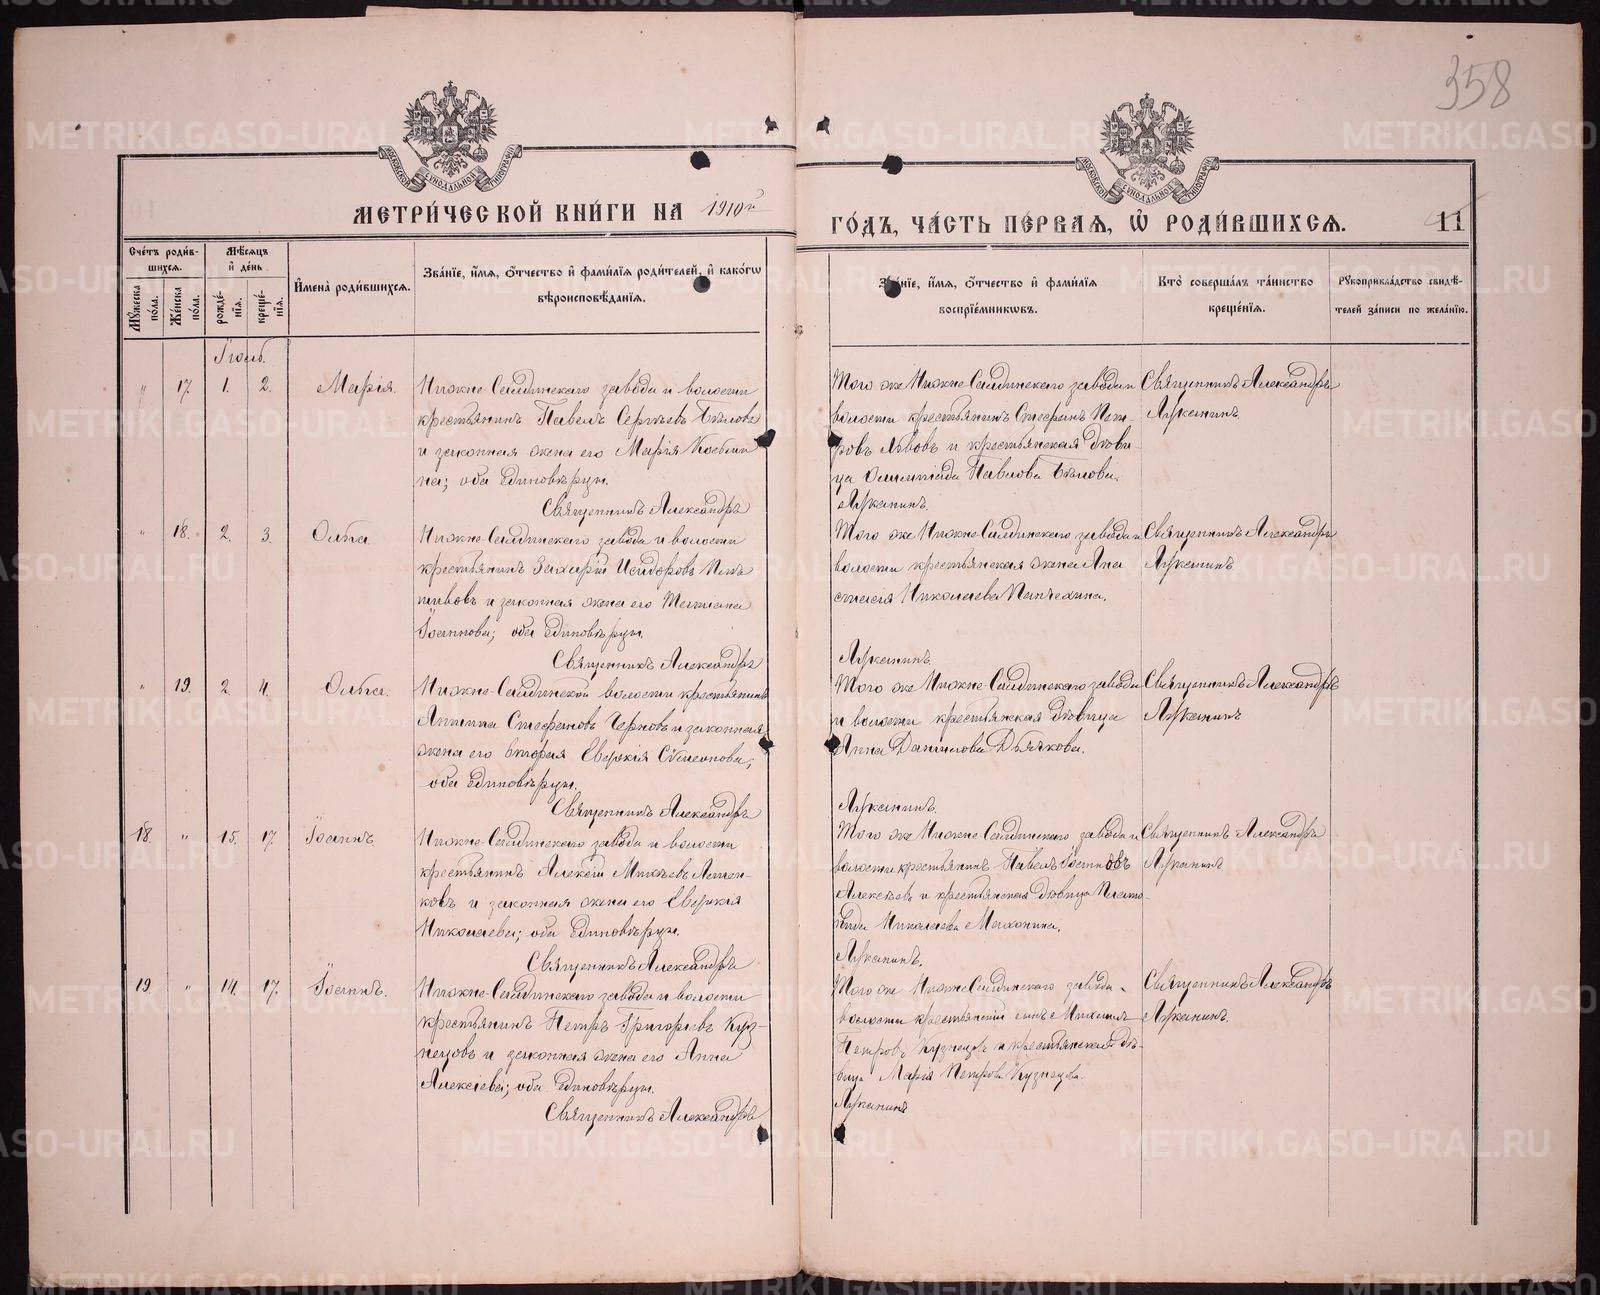 358
МЕТРИЧЕСКОЙ КНИГИ НА 1910й
ГОДЪ, ЧАСТЬ ПЕРВАЯ, Ѡ РОДИВШИХСЯ.
11
Счетъ родив-
шихся.
Мѣсяцъ
и день
Имена родившихся.
Званіе, имя, отчество и фамилія родителей, и какогѡ
вѣроисповѣданія.
Мужеска
пола.
Женска
пола.
рожде-
нія.
креще-
нія.
Званіе, имя, отчество и фамилія
воспріемникѡвъ.
Кто совершалъ таинство
крещенія.
Рукоприкладство свидѣ-
телей записи по желанію.
Іюль.
" 17. 1. 2. Марія.
Нижне-Салдинскаго завода и волости
крестьянинъ Павелъ Сергѣевъ Бѣловъ
и законная жена его Марія
на; оба единовѣрцы.
Священникъ Александръ
Того же Нижне-Салдинскаго завода и
волости крестьянинъ Стефанъ Пет-
ровъ Львовъ и крестьянская дѣви-
ца Олимпіада Павлова Бѣлова.
Луканинъ.
Священникъ Александръ
Луканинъ.
" 18. 2. 3. Ольга
Нижне-Салдинскаго завода и волости
крестьянинъ Захарій Исидоровъ
и законная жена его Татіана
Іоаннова; оба единовѣрцы.
Священникъ Александръ
Того же Нижне-Салдинскаго завода и
волости крестьянская жена Ана
стасія Николаева
Луканинъ.
Священникъ Александръ
Луканинъ.
" 19. 2. 4. Ольга.
Нижне-Салдинской волости крестьянинъ
Аггипа Стефановъ Черновъ и законная
жена его вторая Евдокія Сѵмеонова;
оба единовѣрцы.
Священникъ Александръ
Того же Нижне-Салдинскаго завода
и волости крестьянская дѣвица
Анна Данилова Дьячкова.
Луканинъ.
Священникъ Александръ
Луканинъ
18. " 15. 17. Іоаннъ
Нижне-Салдинскаго завода и волости
крестьянинъ Алексій
ковъ и законная жена его Евдокія
Николаева; оба единовѣрцы.
Священникъ Александръ
Того же Нижне-Салдинскаго завода и
волости крестьянинъ Павелъ Іоанновъ
Алексѣевъ и крестьянская дѣвица
Николаева
Луканинъ.
Священникъ Александръ
Луканинъ
19. " 14. 17. Іоаннъ.
Нижне-Салдинскаго завода и волости
крестьянинъ Петръ Григорьевъ Куз-
нецовъ и законная жена его Анна
Алексіева; оба единовѣрцы.
Священникъ Александръ
Того же Нижне-Салдинскаго завода и
волости крестьянскій сынъ Михаилъ
Петровъ Кузнецовъ и крестьянская дѣ-
вица Марія Петрова Кузнецова.
Луканинъ
Священникъ Александръ
Луканинъ.